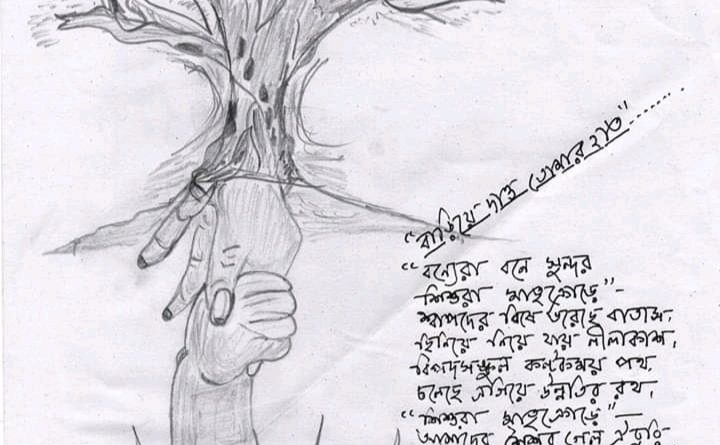 "বাড়িয়ে দাও তোমার হাত"........
"বন্যেরা বনে সুন্দর
শিশুরা মাতৃক্রোড়ে"–
শ্বাপদের বিষে ভরেছে বাতাস,
ছিনিয়ে নিয়ে যায় নীলাকাশ,
বিপদসঙ্কুল কন্টকময় পথ,
চলেছে এগিয়ে উন্নতির রথ,
"শিশুরা মাতৃক্রোড়ে"—
আমাদের শৈশব গেল